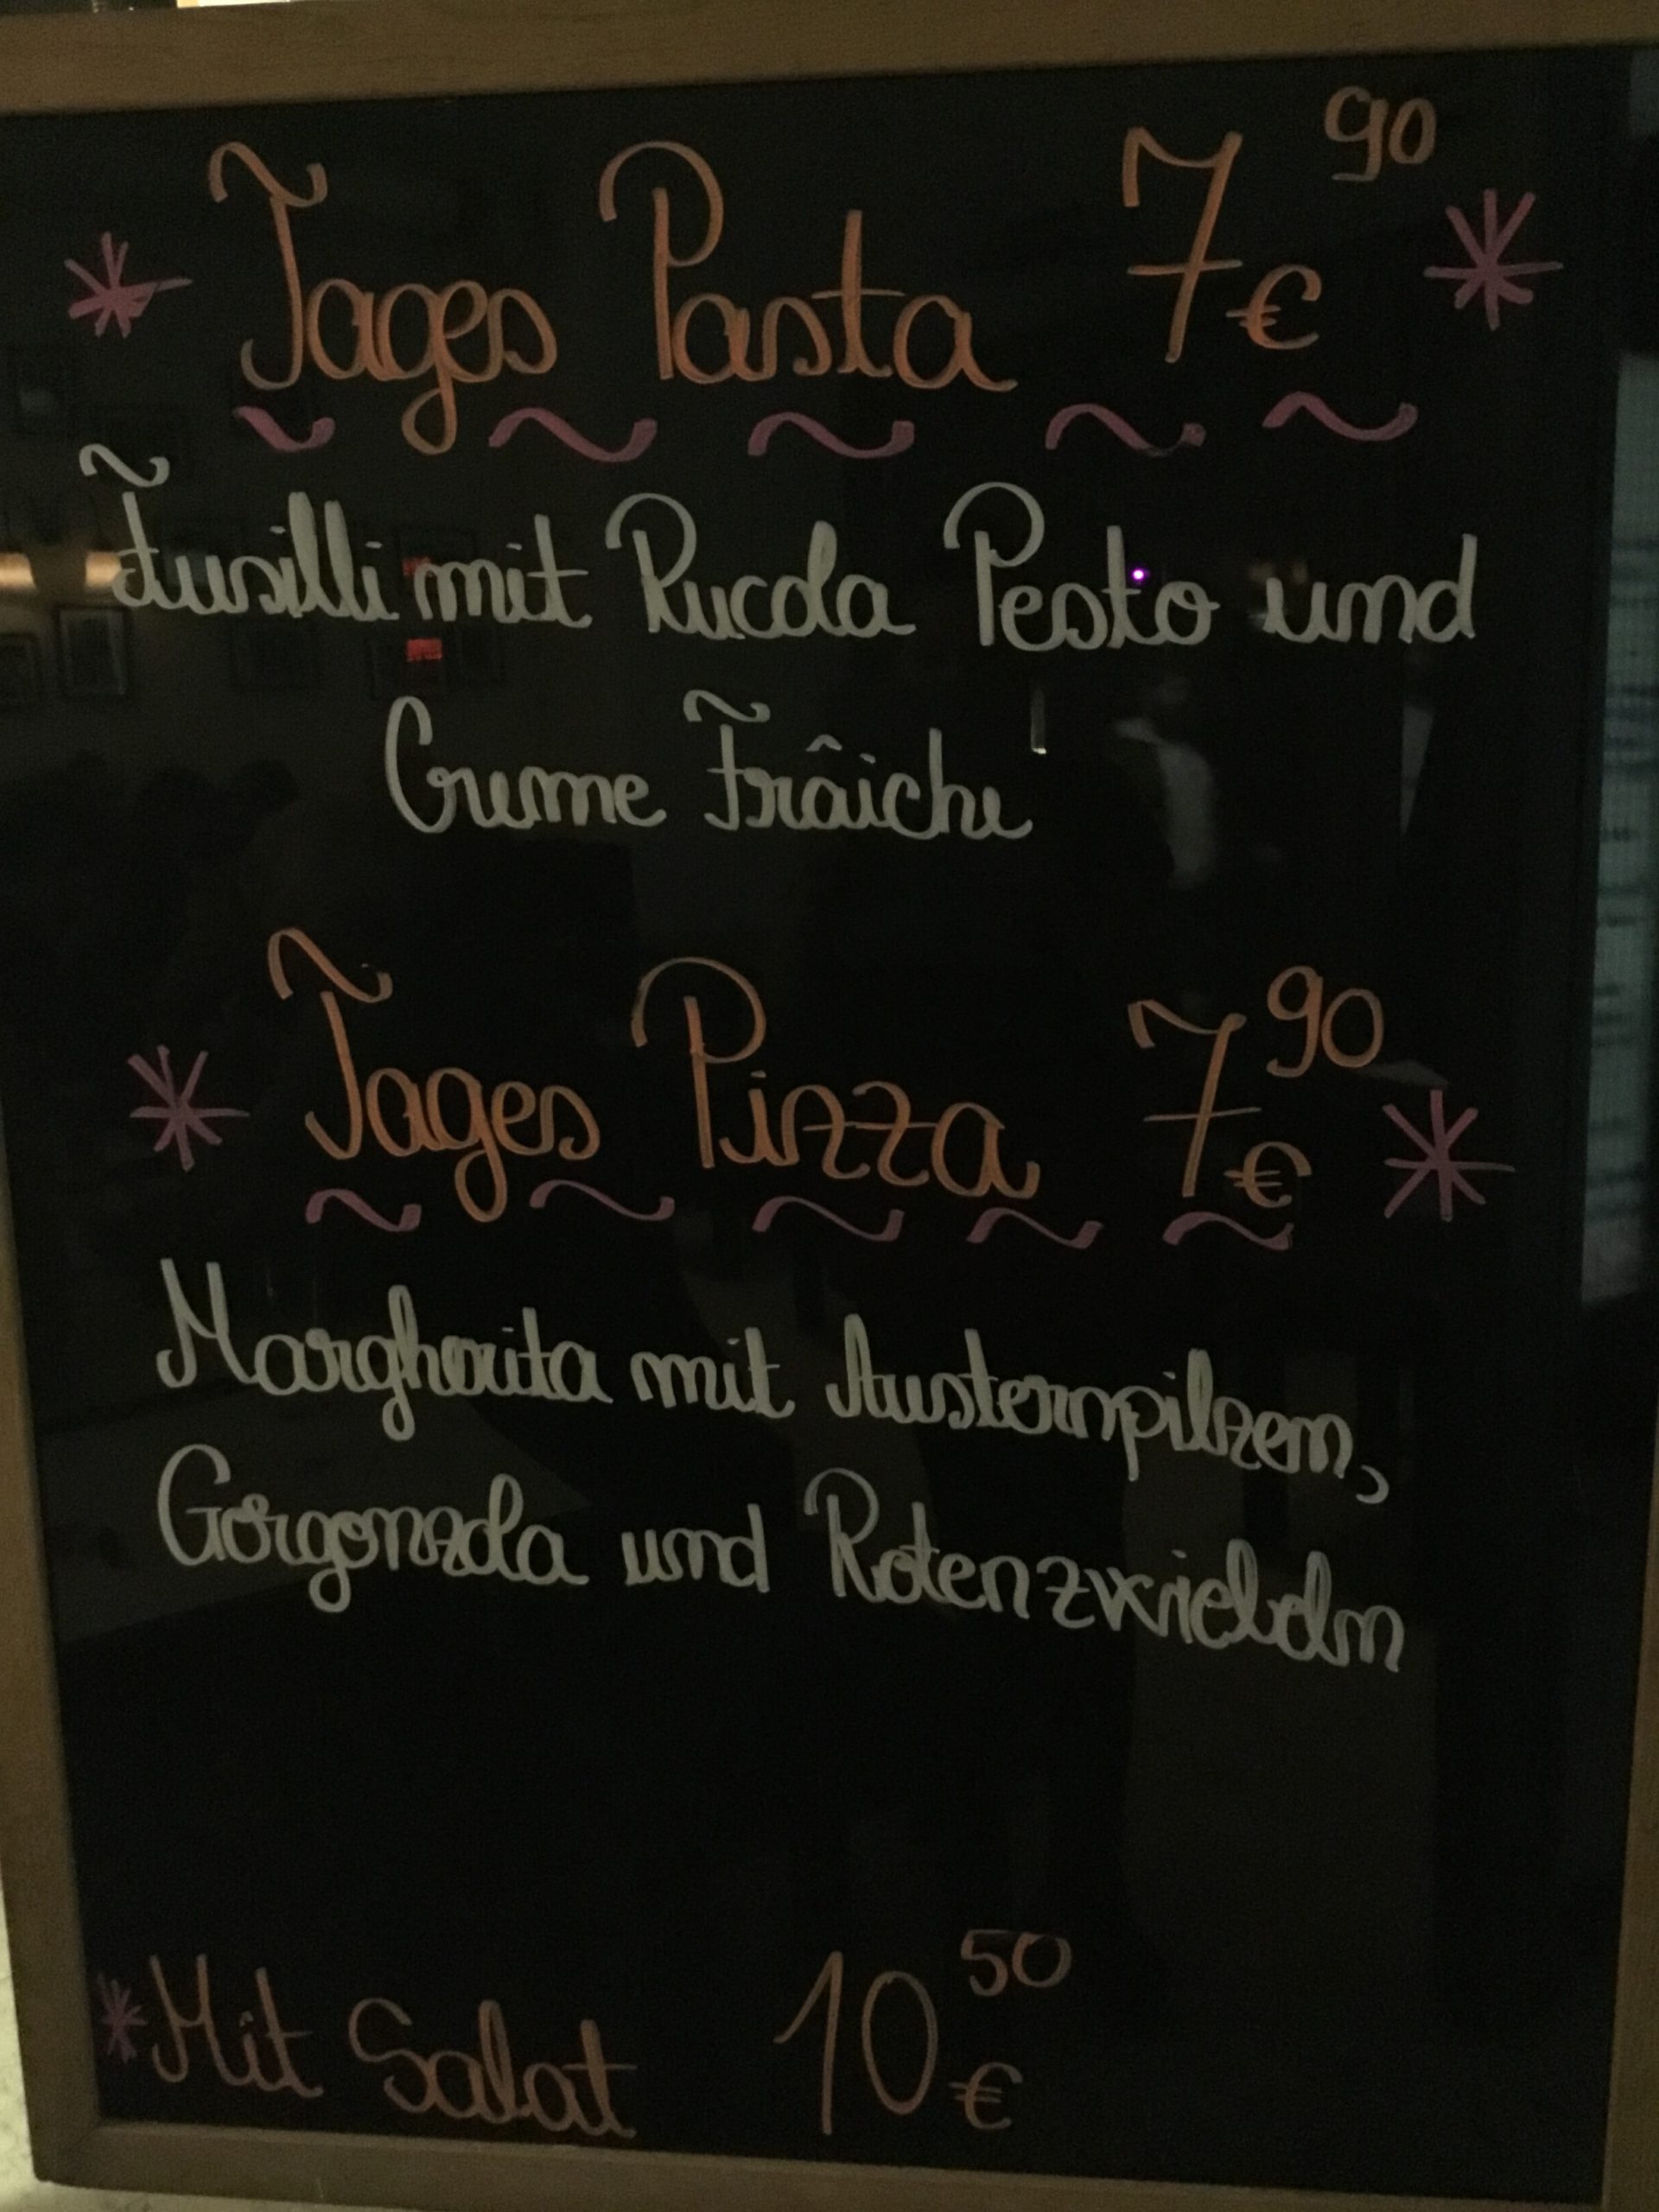 * Tages Pasta 7,90 € *
~ ~ ~ ~ ~
Fusilli mit Rucola Pesto und
Creme Frâiche
* Tages Pizza 7,90 € *
~ ~ ~ ~ ~
Margherita mit Austernpilzen,
Gorgonzola und Rotenzwiebeln
*Mit Salat 10,50 €